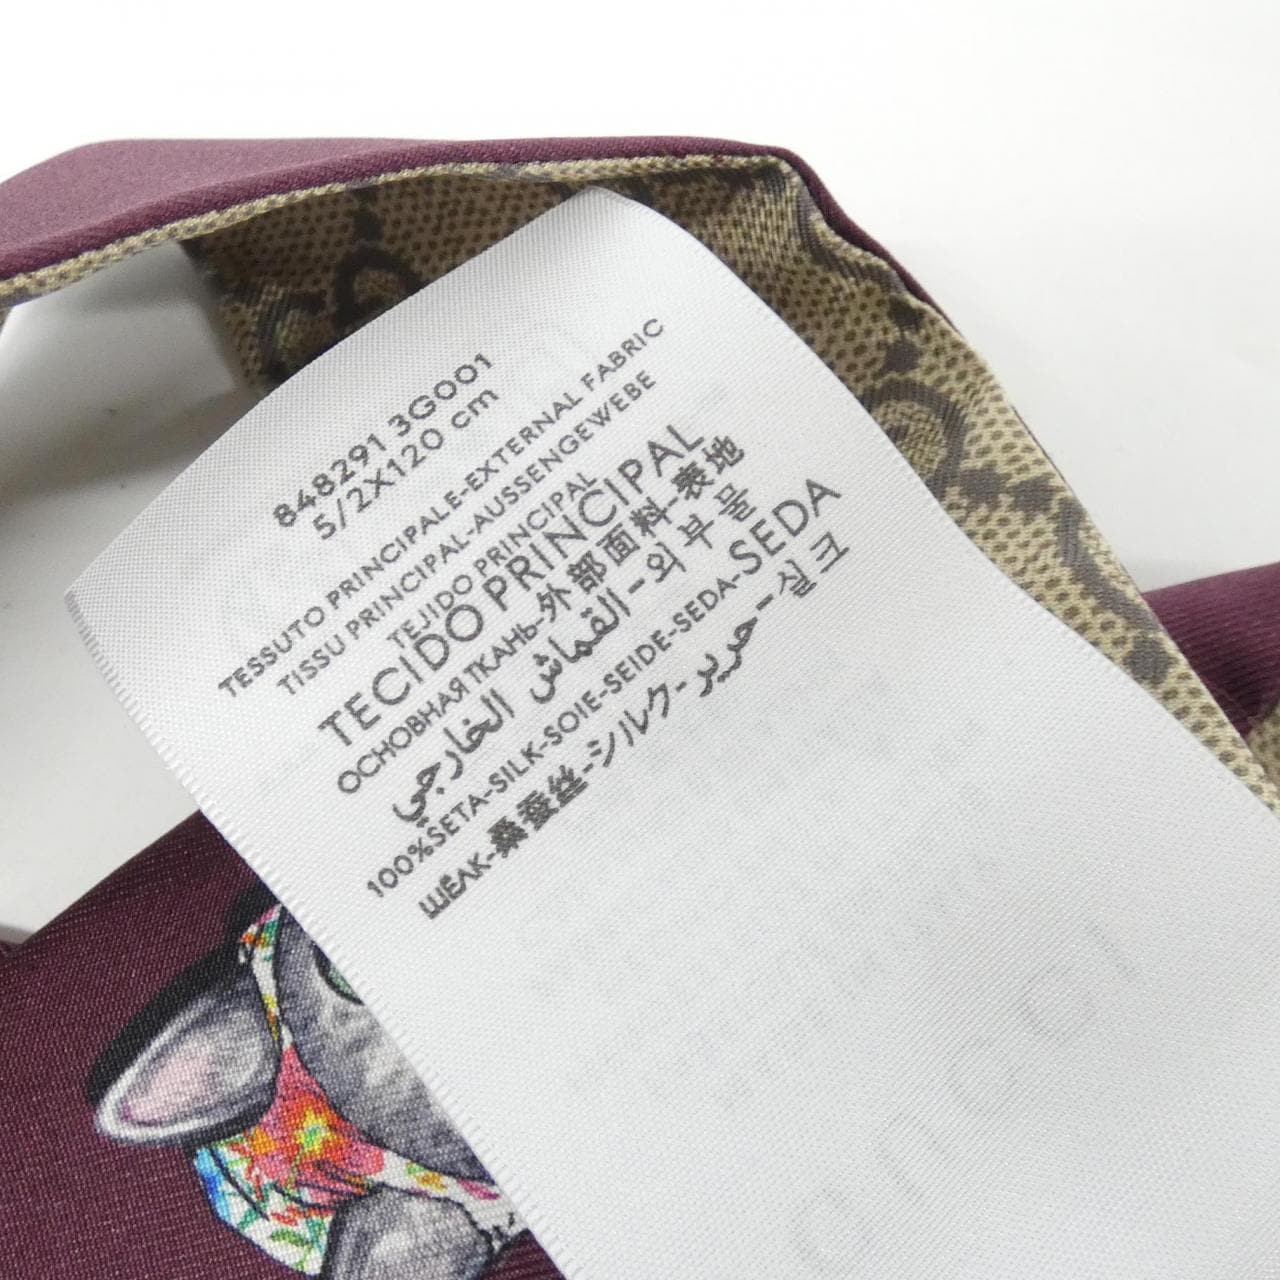 848291 3G001
5/2X120 cm
TESSUTO PRINCIPALE-EXTERNAL FABRIC
TISSU PRINCIPAL-AUSSENGEWEBE
TEJIDO PRINCIPAL
TECIDO PRINCIPAL
ОСНОВНАЯ ТКАНЬ-外部面料-表地
القماش الخارجي-외부물
100%SETA-SILK-SOIE-SEIDE-SEDA-SEDA
ШЁЛК-桑蚕丝-シルク-حرير-실크